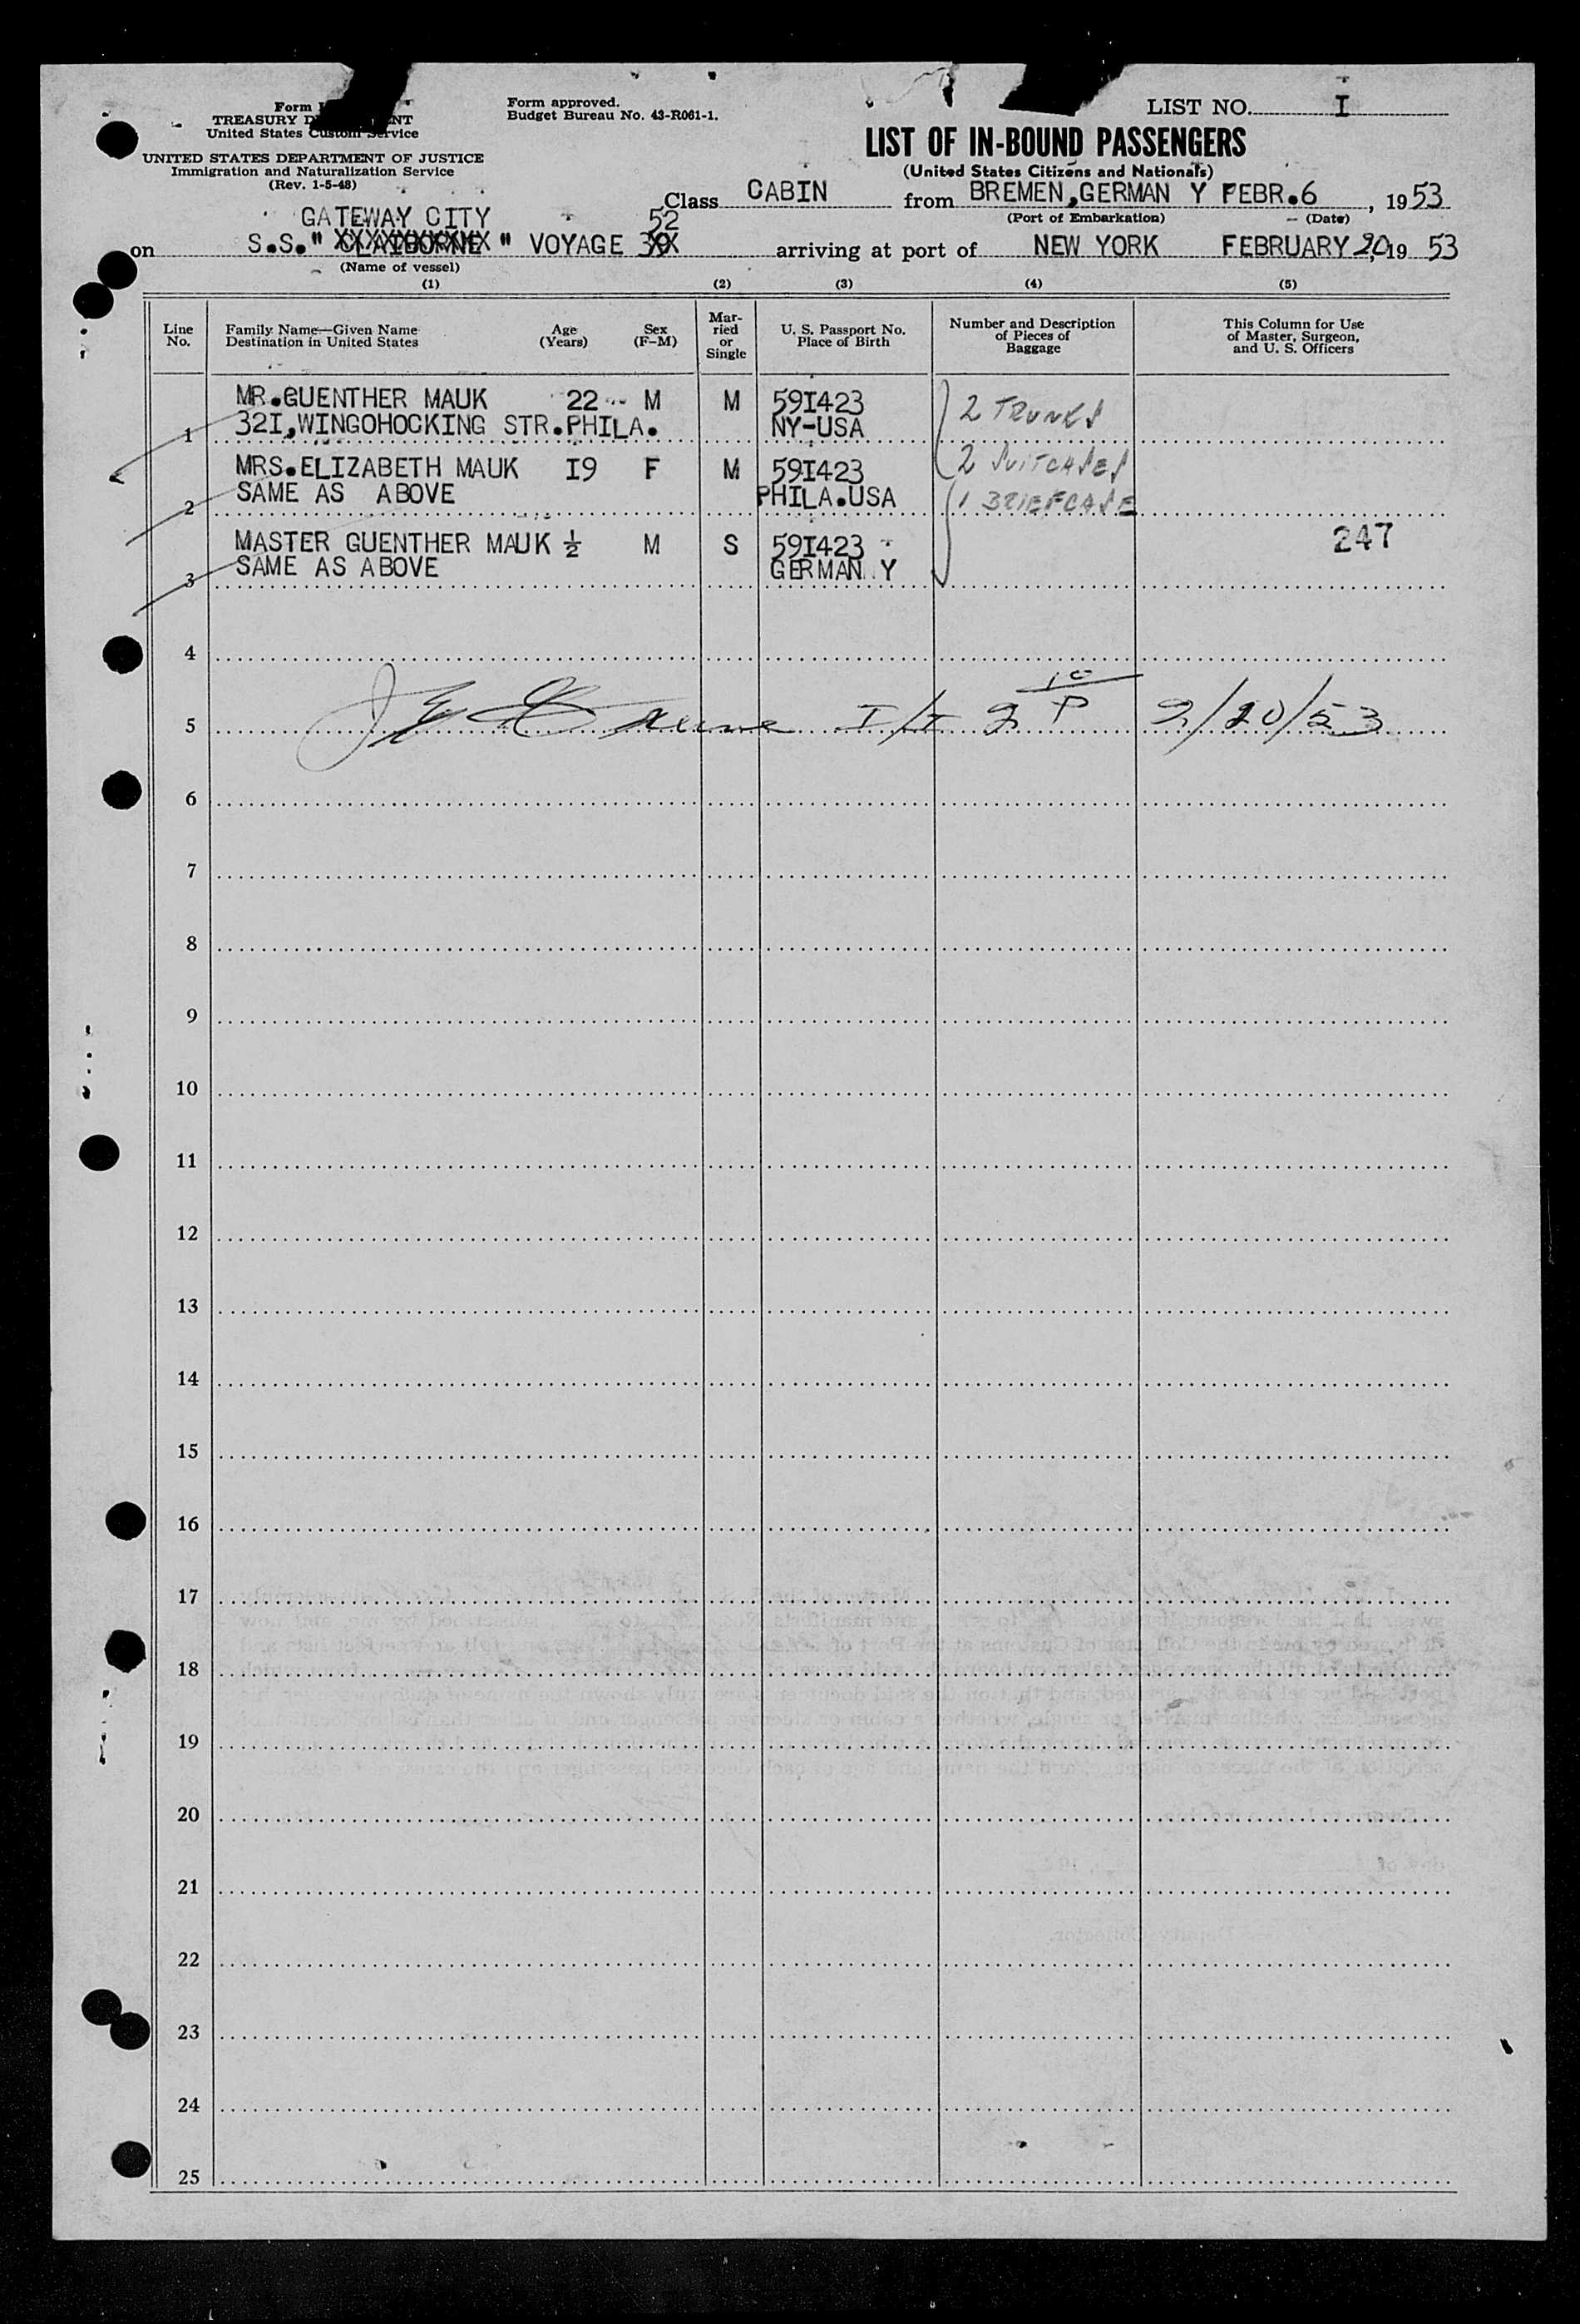 Form
TREASURY D NT
United States Custom Service
UNITED STATES DEPARTMENT OF JUSTICE
Immigration and Naturalization Service
(Rev. 1-5-48)
Form approved.
Budget Bureau No. 43-R061-1.
LIST NO. I
LIST OF IN-BOUND PASSENGERS
(United States Citizens and Nationals)
Class CABIN from BREMEN,GERMAN Y FEBR.6 , 1953
(Port of Embarkation) (Date)
GATEWAY CITY 52
on S.S." CLAIBORNE " VOYAGE 39 arriving at port of NEW YORK FEBRUARY 20,19 53
(Name of vessel)
(1) (2) (3) (4) (5)
Line No.
Family Name—Given Name
Destination in United States
Age
(Years)
Sex
(F-M)
Mar-
ried
or
Single
U. S. Passport No.
Place of Birth
Number and Description
of Pieces of
Baggage
This Column for Use
of Master, Surgeon,
and U. S. Officers
MR.GUENTHER MAUK 22 M M 59I423 2 TRUNKS
1 32I,WINGOHOCKING STR.PHILA. NY-USA
MRS.ELIZABETH MAUK I9 F M 59I423 2 SUITCASES
2 SAME AS ABOVE PHILA.USA 1 BRIEFCASE
MASTER GUENTHER MAUK ½ M S 59I423 247
3 SAME AS ABOVE GERMAN Y
4
5 2/20/53
6
7
8
9
10
11
12
13
14
15
16
17
18
19
20
21
22
23
24
25